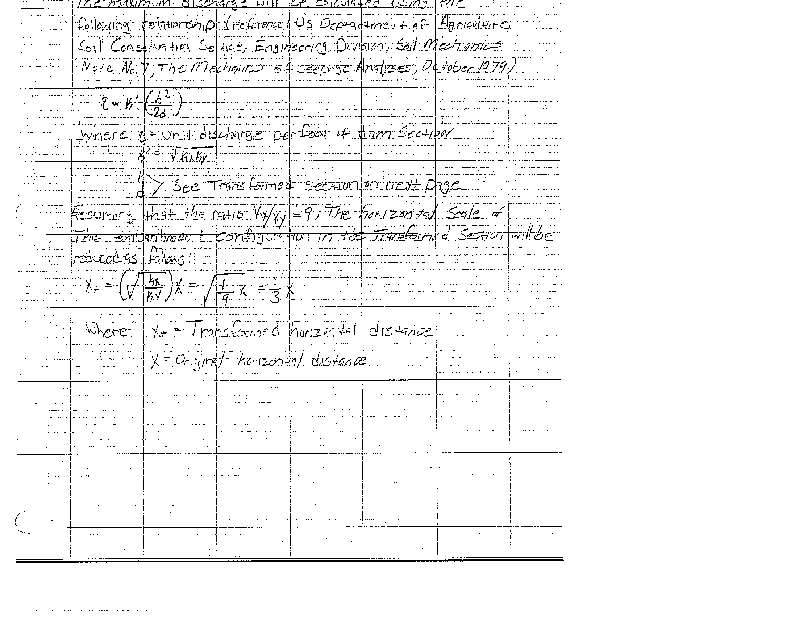 The maximum discharge will be calculated using the
following relationship (reference US Department of Agriculture,
Soil Conservation Service, Engineering Division, Soil Mechanics
Note No. 7, The Mechanics of Seepage Analyses, October 1979)
q = k' (h²/2d)
Where q = Unit discharge per foot of Dam Section
k' = √khkv
h
d > See Transformed section on next page
Assuming that the ratio = 9, The horizontal Scale of
The embankment configuration in the Transformed Section will be
reduced as follows:
XT = (√) X = √1/9 X = 1/3 X
Where XT = Transformed horizontal distance
X = Original horizontal distance